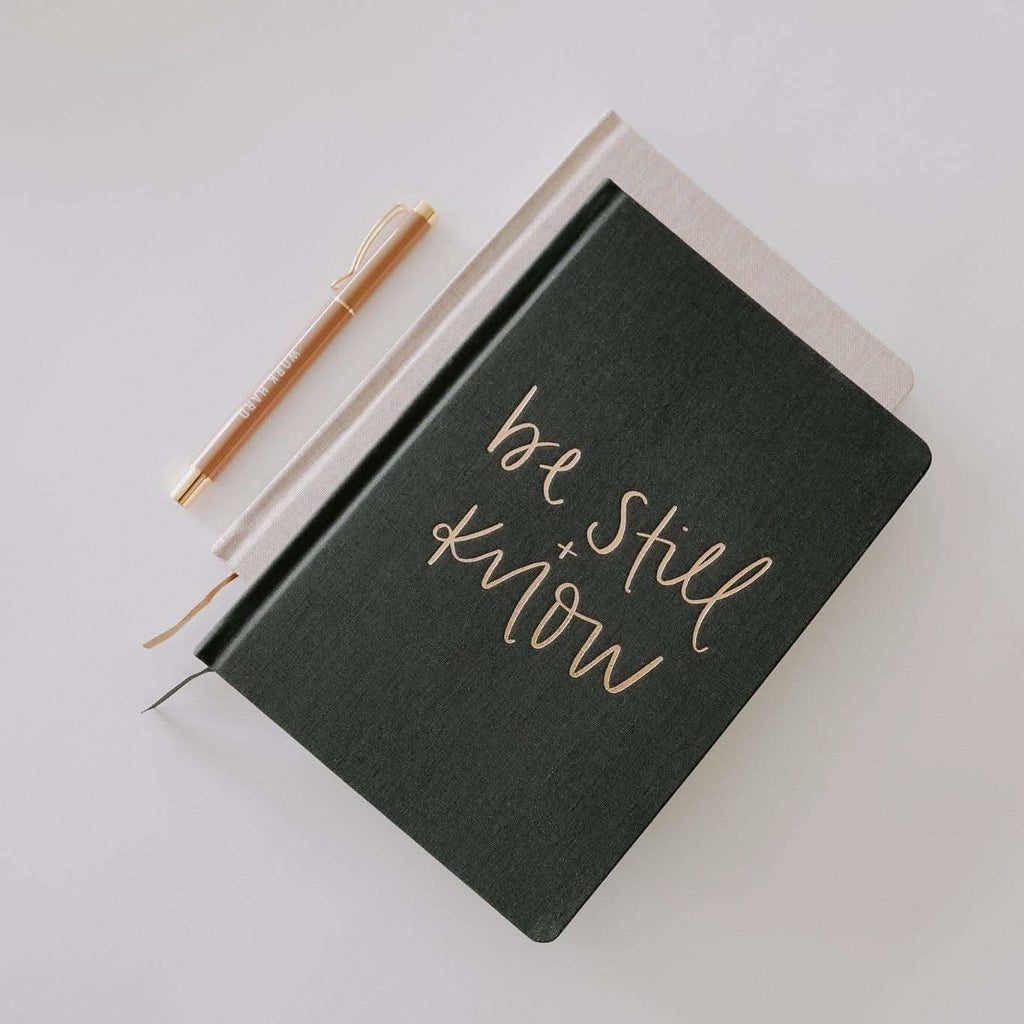 WORK HARD
be Still
+
Know